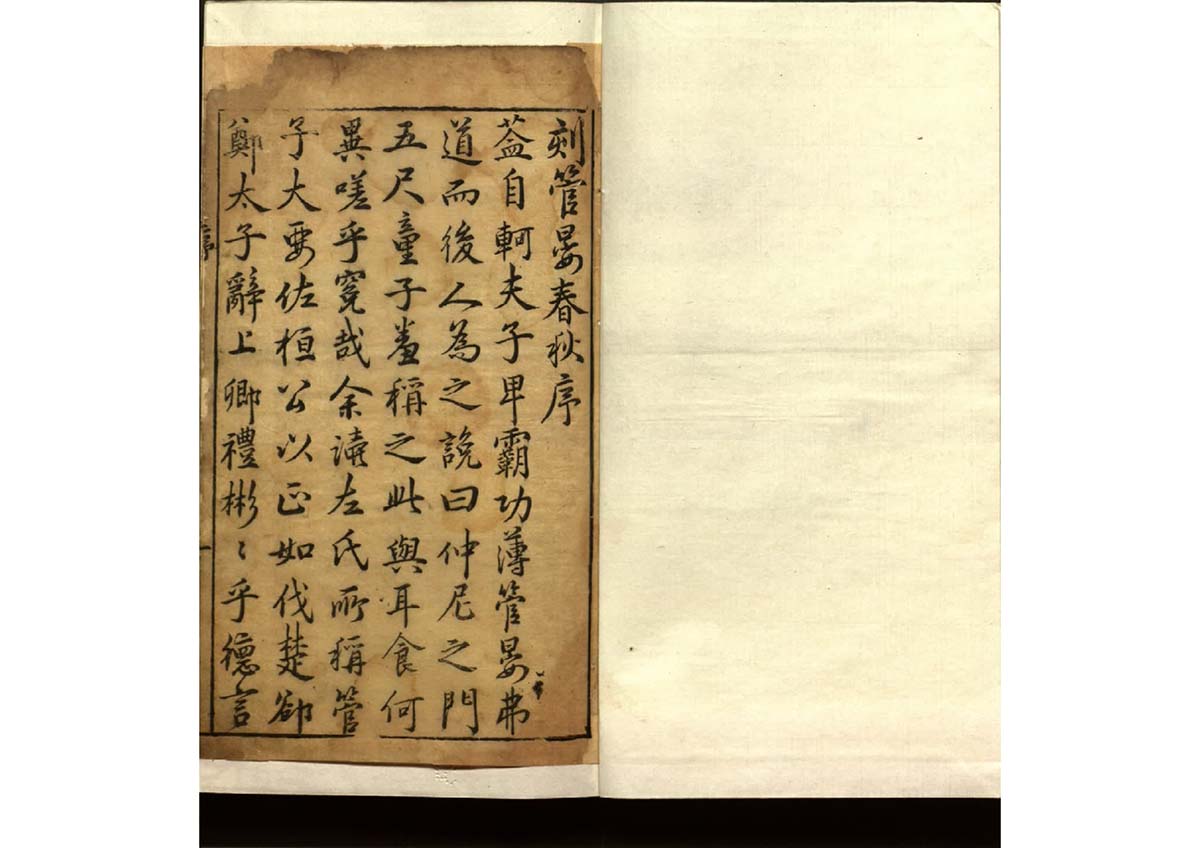 刻管晏春秋序
葢自軻夫子卑霸功薄管晏弗
道而後人為之說曰仲尼之門
五尺童子羞稱之此與耳食何
異嗟乎寃哉余讀左氏所稱管
子大要佐桓公以正如伐楚卻
鄭太子辭上卿禮彬〻乎德言
序
一